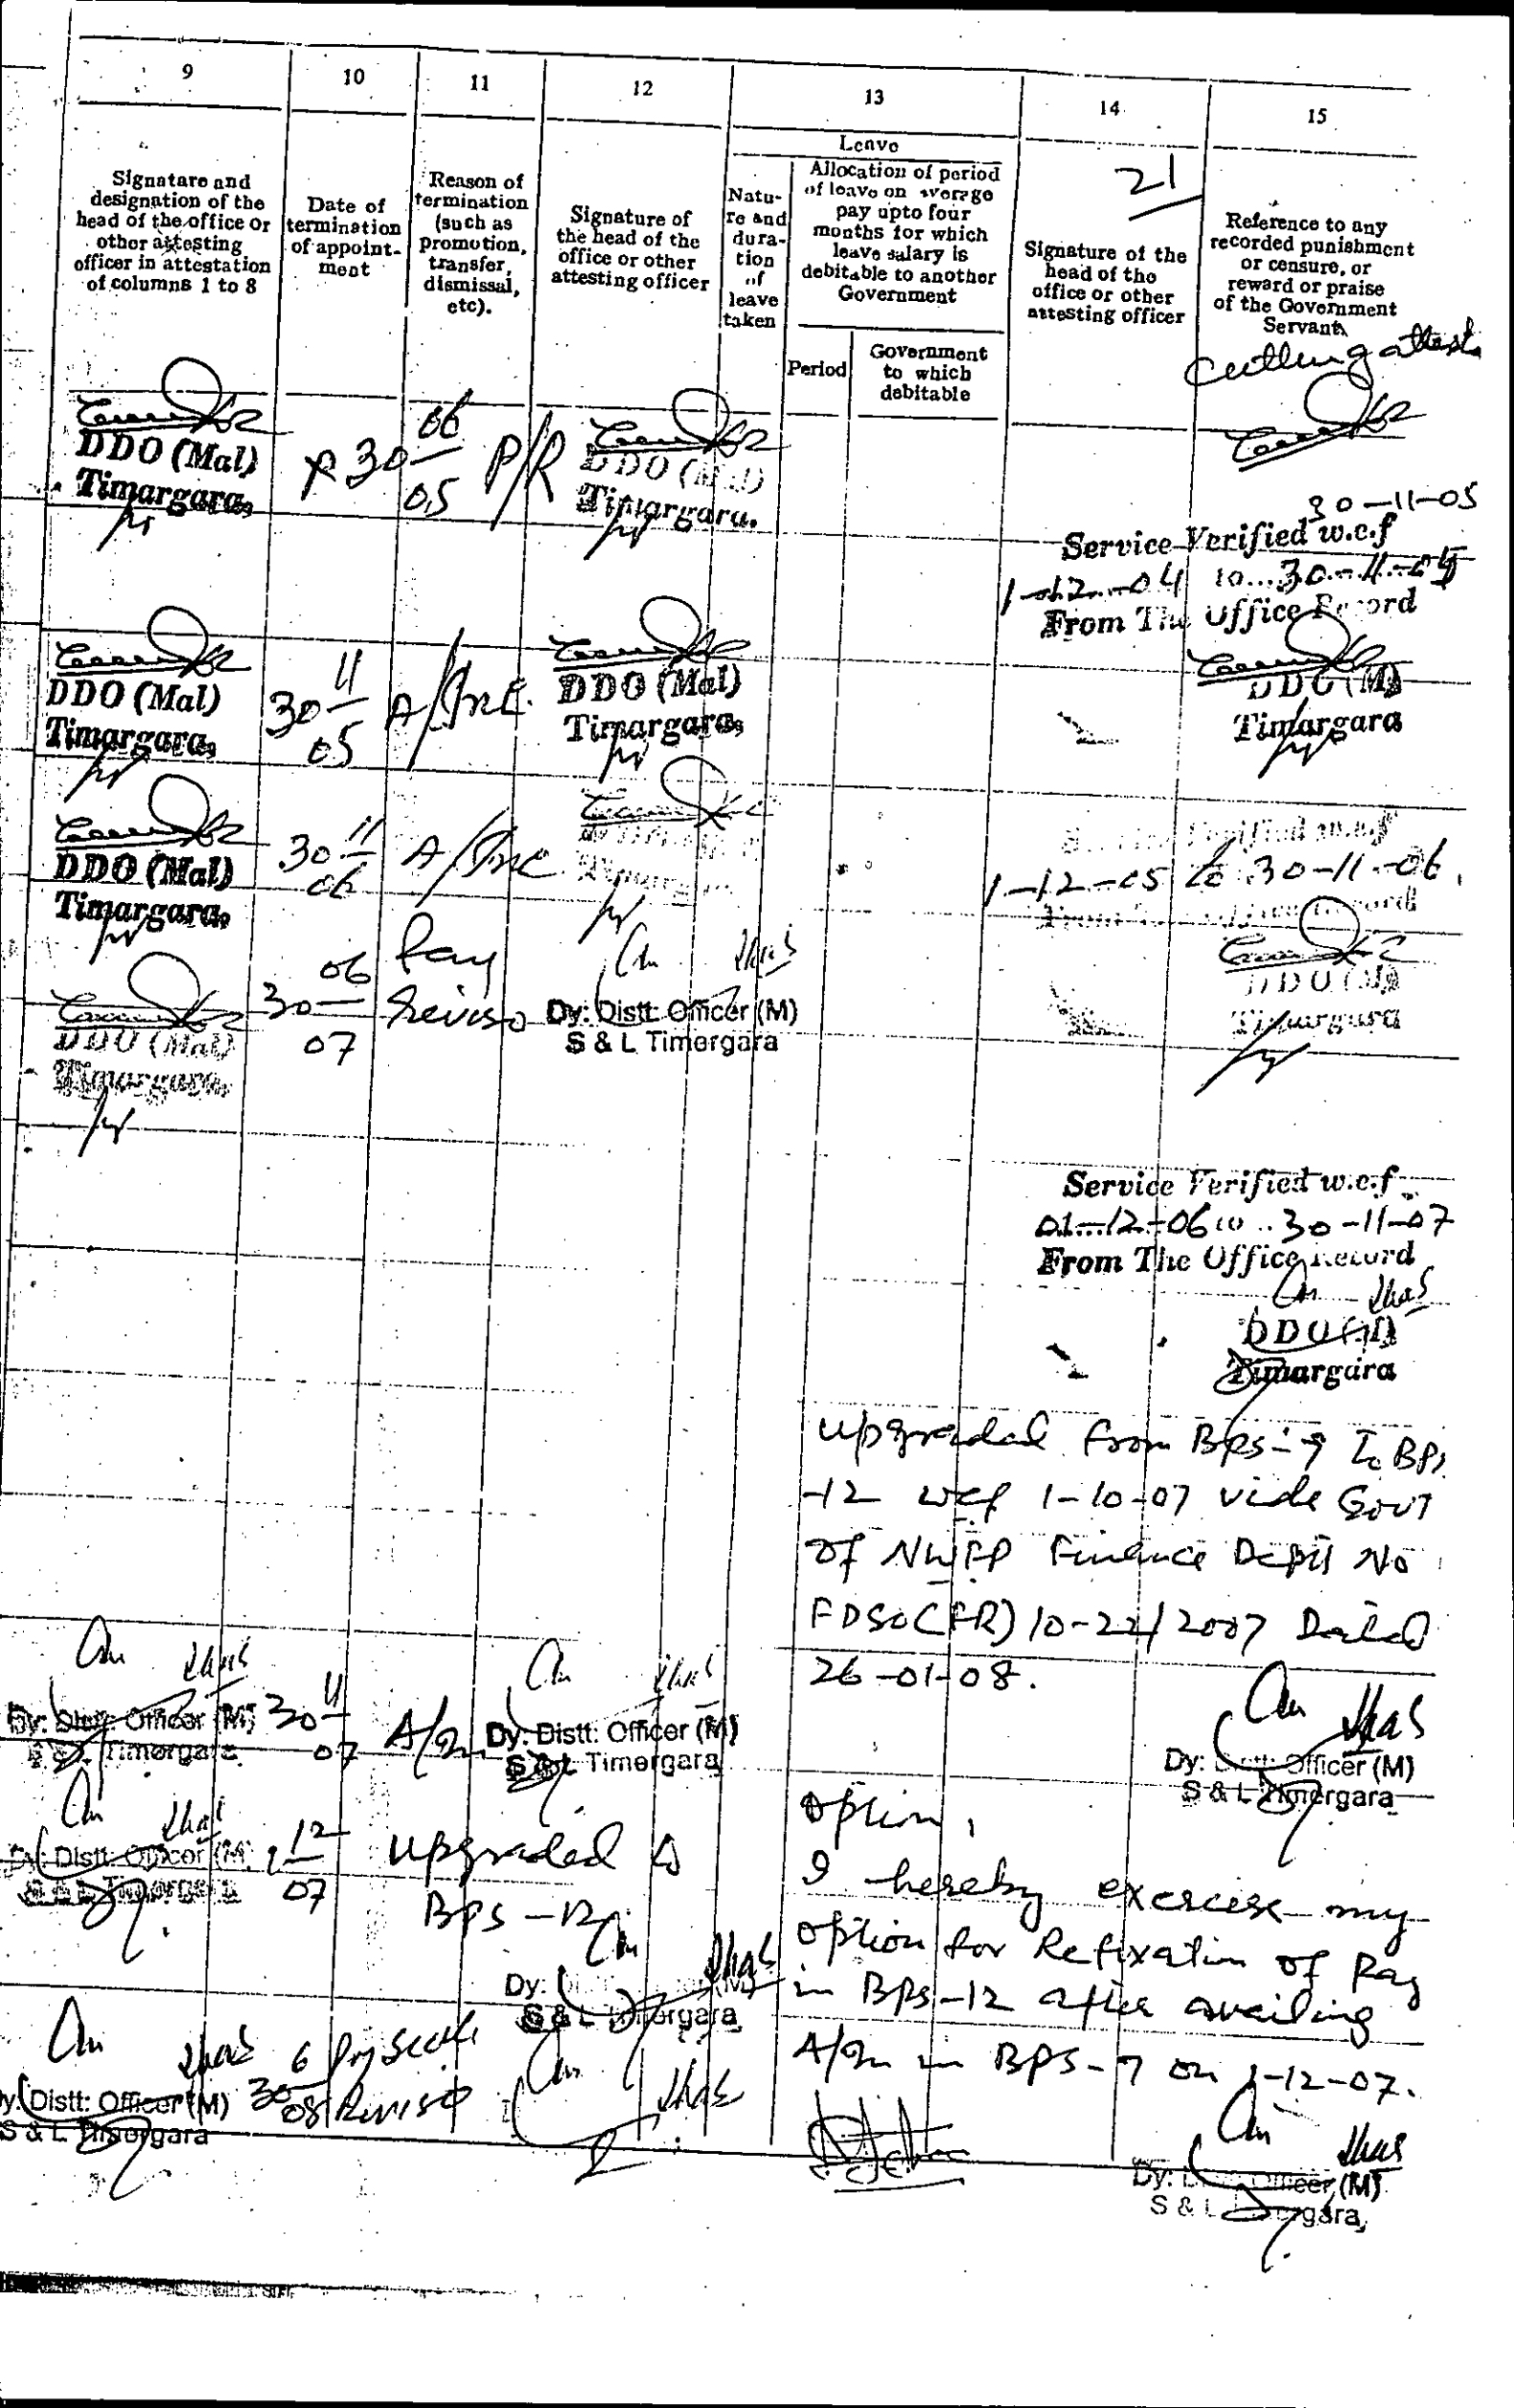 9 10 11 12 13 14 15
21
Leave
Signature and
designation of the
head of the office or
other attesting
officer in attestation
of columns 1 to 8
Date of
termination
of appoint-
ment
Reason of
termination
(such as
promotion,
transfer,
dismissal,
etc).
Signature of
the head of the
office or other
attesting officer
Natu-
re and
dura-
tion
of
leave
taken
Allocation of period
of leave on average
pay upto four
months for which
leave salary is
debitable to another
Government
Period
Government
to which
debitable
Signature of the
head of the
office or other
attesting officer
Reference to any
recorded punishment
or censure, or
reward or praise
of the Government
Servant.
Cutting attest
DDO (Mal)
Timargara.
30 06
05
P/R
DDO (Mal)
Timargara.
30-11-05
Service Verified w.e.f
1-12-04 to 30-11-05
From The Office Record
DDO (M)
Timargara
DDO (Mal)
Timargara.
30 11
05
A/Inc.
DDO (Mal)
Timargara.
DDO (Mal)
Timargara.
30 11
06
A/Inc
Service Verified w.e.f
1-12-05 to 30-11-06.
From The Office Record
DDO (M)
Timargara
DDO (Mal)
Timargara.
30 06
07
Pay
Reviso
Dy: Distt: Officer (M)
S & L Timergara
Service Verified w.e.f
01-12-06 to 30-11-07
From The Office Record
DDO (M)
Timargara
Upgraded from BPS-9 To BPS
-12 wef 1-10-07 vide Govt
of NWFP Finance Deptt No
FDSO(FR) 10-22/2007 Dated
26-01-08.
Dy: Distt: Officer (M)
S & L Timergara
Dy: Distt: Officer (M)
S & L Timergara
30 11
07
A/In
Dy: Distt: Officer (M)
S & L Timergara
Dy: Distt: Officer (M)
S & L Timergara
12
07
Upgraded to
BPS-12
Dy: Distt: Officer (M)
S & L Timergara
Option,
I hereby excerse my
option for Refixation of Pay
in BPS-12 after availing
A/In in BPS-7 on 1-12-07.
Dy: Distt: Officer (M)
S & L Timergara
30 6
08
Pay Scale
Revise
Dy: Distt: Officer (M)
S & L Timergara